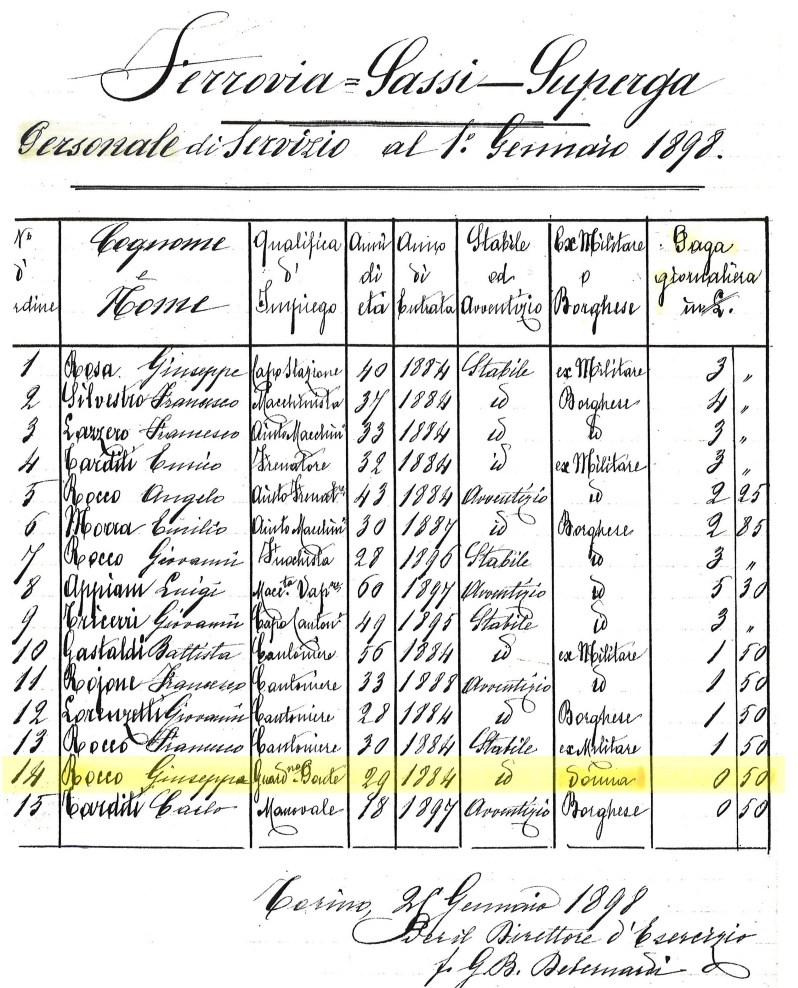 Ferrovia=Sassi—Superga
Personale di Servizio al 1º Gennaio 1898.
Nº d' rdine | Cognome e Nome | Qualifica d' Impiego | Anni di età | Anno di Entrata | Stabile od Avventizio | Ex Militare o Borghese | Paga giornaliera in £.
1 Rosa Giuseppe Capo Stazione 40 1884 Stabile ex Militare 3 "
2 Silvestro Francesco Macchinista 37 1884 id Borghese 4 "
3 Lazzero Francesco Aiuto Macchini 33 1884 id id 3 "
4 Carditi Enrico Frenatore 32 1884 id ex Militare 3 "
5 Rocco Angelo Aiuto Frenatre 43 1884 Avventizio id 2 25
6 Morra Emilio Aiuto Macchini 30 1887 id Borghese 2 85
7 Rocco Giovanni Fuochista 28 1896 Stabile id 3 "
8 Appiani Luigi Maccta Vapre 60 1897 Avventizio id 5 30
9 Tricerri Giovanni Capo Cantoni 49 1895 Stabile id 3 "
10 Gastaldi Battista Cantoniere 56 1884 id ex Militare 1 50
11 Rojone Francesco Cantoniere 33 1888 Avventizio id 1 50
12 Lorenzetti Giovanni Cantoniere 28 1884 id Borghese 1 50
13 Rocco Francesco Cantoniere 30 1884 Stabile ex Militare 1 50
14 Rocco Giuseppa Guardno 29 1884 id donna 0 50
15 Carditi Carlo Manovale 18 1897 Avventizio Borghese 0 50
Torino, Gennaio 1898
Per il Direttore d'Esercizio
f. G.B. Debernardi